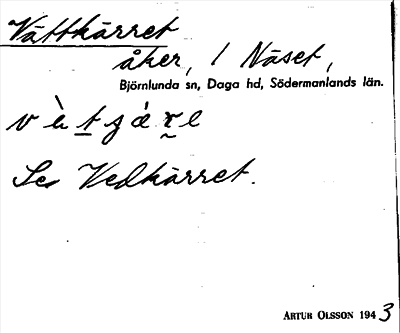 Vättkärret
åker, / Näset,
Björnlunda sn, Daga hd, Södermanlands län.
Se Vedkärret.
ARTUR OLSSON 1943